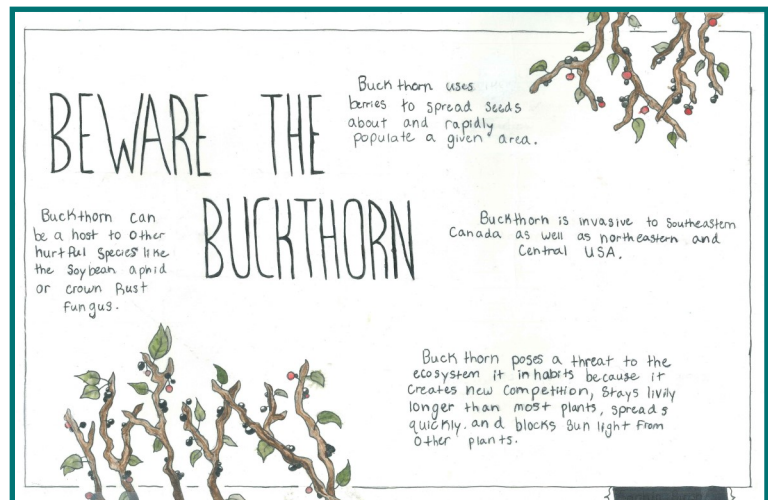 BEWARE THE
BUCKTHORN
Buckthorn uses
berries to spread seeds
about and rapidly
populate a given area.
Buckthorn can
be a host to other
hurtful species like
the Soybean aphid
or crown Rust
fungus.
Buckthorn is invasive to Southeastern
Canada as well as northeastern and
Central USA.
Buckthorn poses a threat to the
ecosystem it inhabits because it
creates new competition, Stays livily
longer than most plants, spreads
quickly. and blocks Sun light from
other plants.